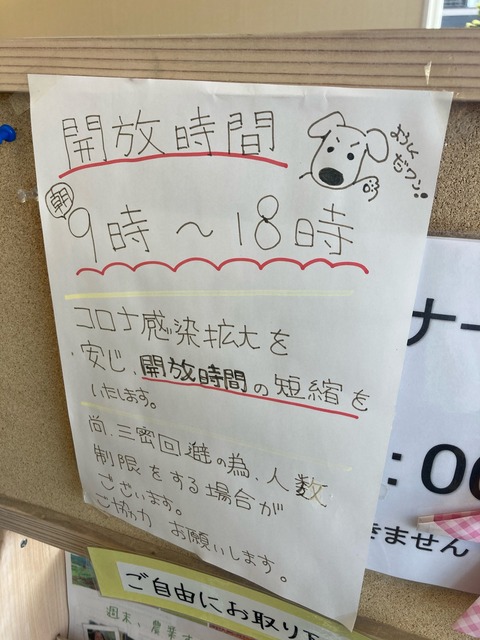 開放時間
よろしく
だワン!!
朝
9時～18時
コロナ感染拡大を
安じ、開放時間の短縮を
いたします。
尚、三密回避の為、人数
制限をする場合が
ございます。
ご協力 お願いします。
ナー
:00
きません
ご自由にお取り下
週末、農業